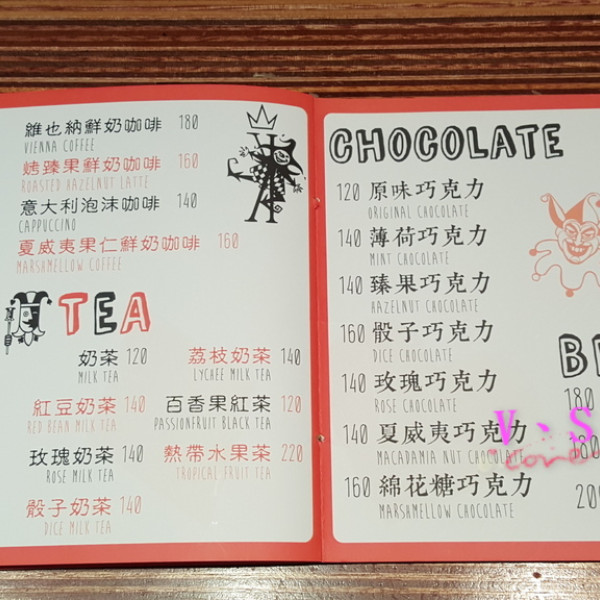 維也納鮮奶咖啡 180
VIENNA COFFEE
烤臻果鮮奶咖啡 160
ROASTED HAZELNUT LATTE
意大利泡沫咖啡 140
CAPPUCCINO
夏威夷果仁鮮奶咖啡 160
MARSHMELLOW COFFEE
TEA
奶茶 120
MILK TEA
荔枝奶茶 140
LYCHEE MILK TEA
紅豆奶茶 140
RED BEAN MILK TEA
百香果紅茶 120
PASSIONFRUIT BLACK TEA
玫瑰奶茶 140
ROSE MILK TEA
熱帶水果茶 220
TROPICAL FRUIT TEA
骰子奶茶 140
DICE MILK TEA
CHOCOLATE
120 原味巧克力
ORIGINAL CHOCOLATE
140 薄荷巧克力
MINT CHOCOLATE
140 臻果巧克力
HAZELNUT CHOCOLATE
160 骰子巧克力
DICE CHOCOLATE
140 玫瑰巧克力
ROSE CHOCOLATE
140 夏威夷巧克力
MACADAMIA NUT CHOCOLATE
160 綿花糖巧克力
MARSHMELLOW CHOCOLATE
180
180